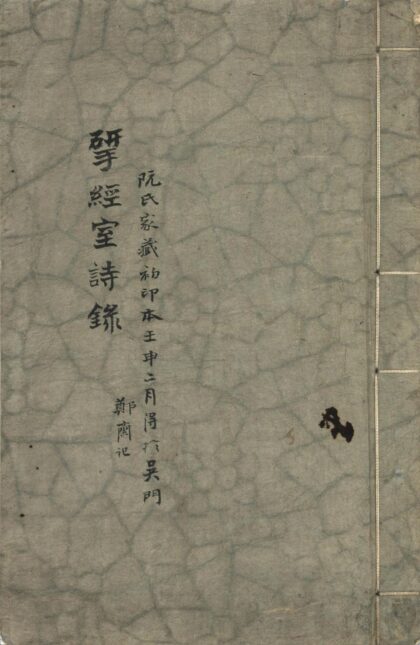 阮氏家藏初印本壬申二月得於吳門
鄭齋記
揅經室詩錄